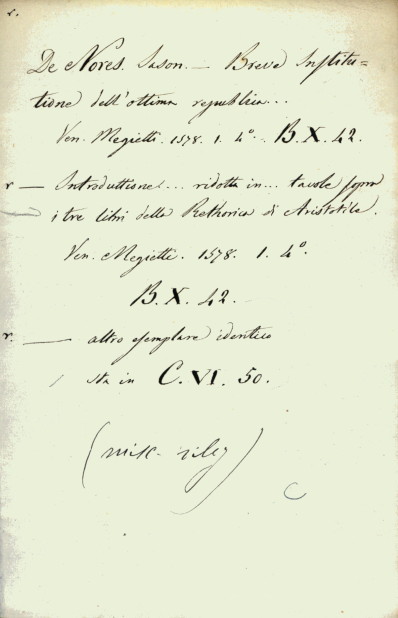 r.
De Nores. Jason. — Breve Institu=
tione dell'ottima republica...
Ven. Megietti. 1578. 1. 4°. - B. X. 42.
r — Introduttione... ridotta in... tavole sopra
i tre libri della Rethorica di Aristotile.
Ven. Megietti. 1578. 1. 4°.
B. X. 42.
r. — altro esemplare identico
sta in C. VI. 50.
(misc.
C